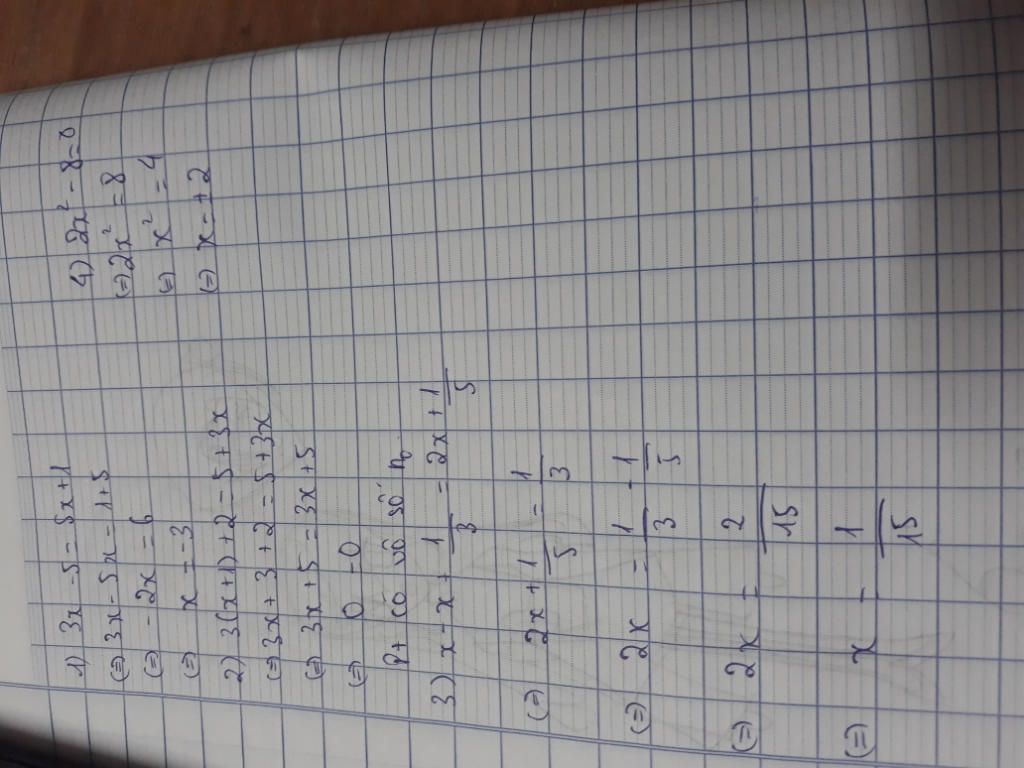 1) 3x - 5 = 5x + 1
(=) 3x - 5x = 1 + 5
(=) - 2x = 6
(=) x = - 3
2) 3(x + 1) + 2 = 5 + 3x
(=) 3x + 3 + 2 = 5 + 3x
(=) 3x + 5 = 3x + 5
(=) 0 = 0
Pt có vô số n₀
3) x - x + 1/3 = 2x + 1/5
(=) 2x + 1/5 = 1/3
(=) 2x = 1/3 - 1/5
(=) 2x = 2/15
(=) x = 1/15
4) 2x² - 8 = 0
(=) 2x² = 8
(=) x² = 4
(=) x = ±2